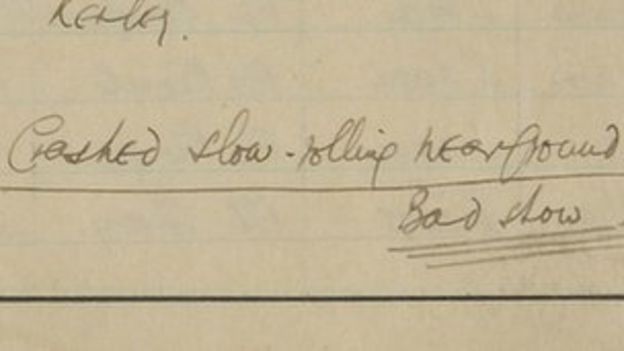 Kenley.
Crashed slow-rolling near ground
Bad show